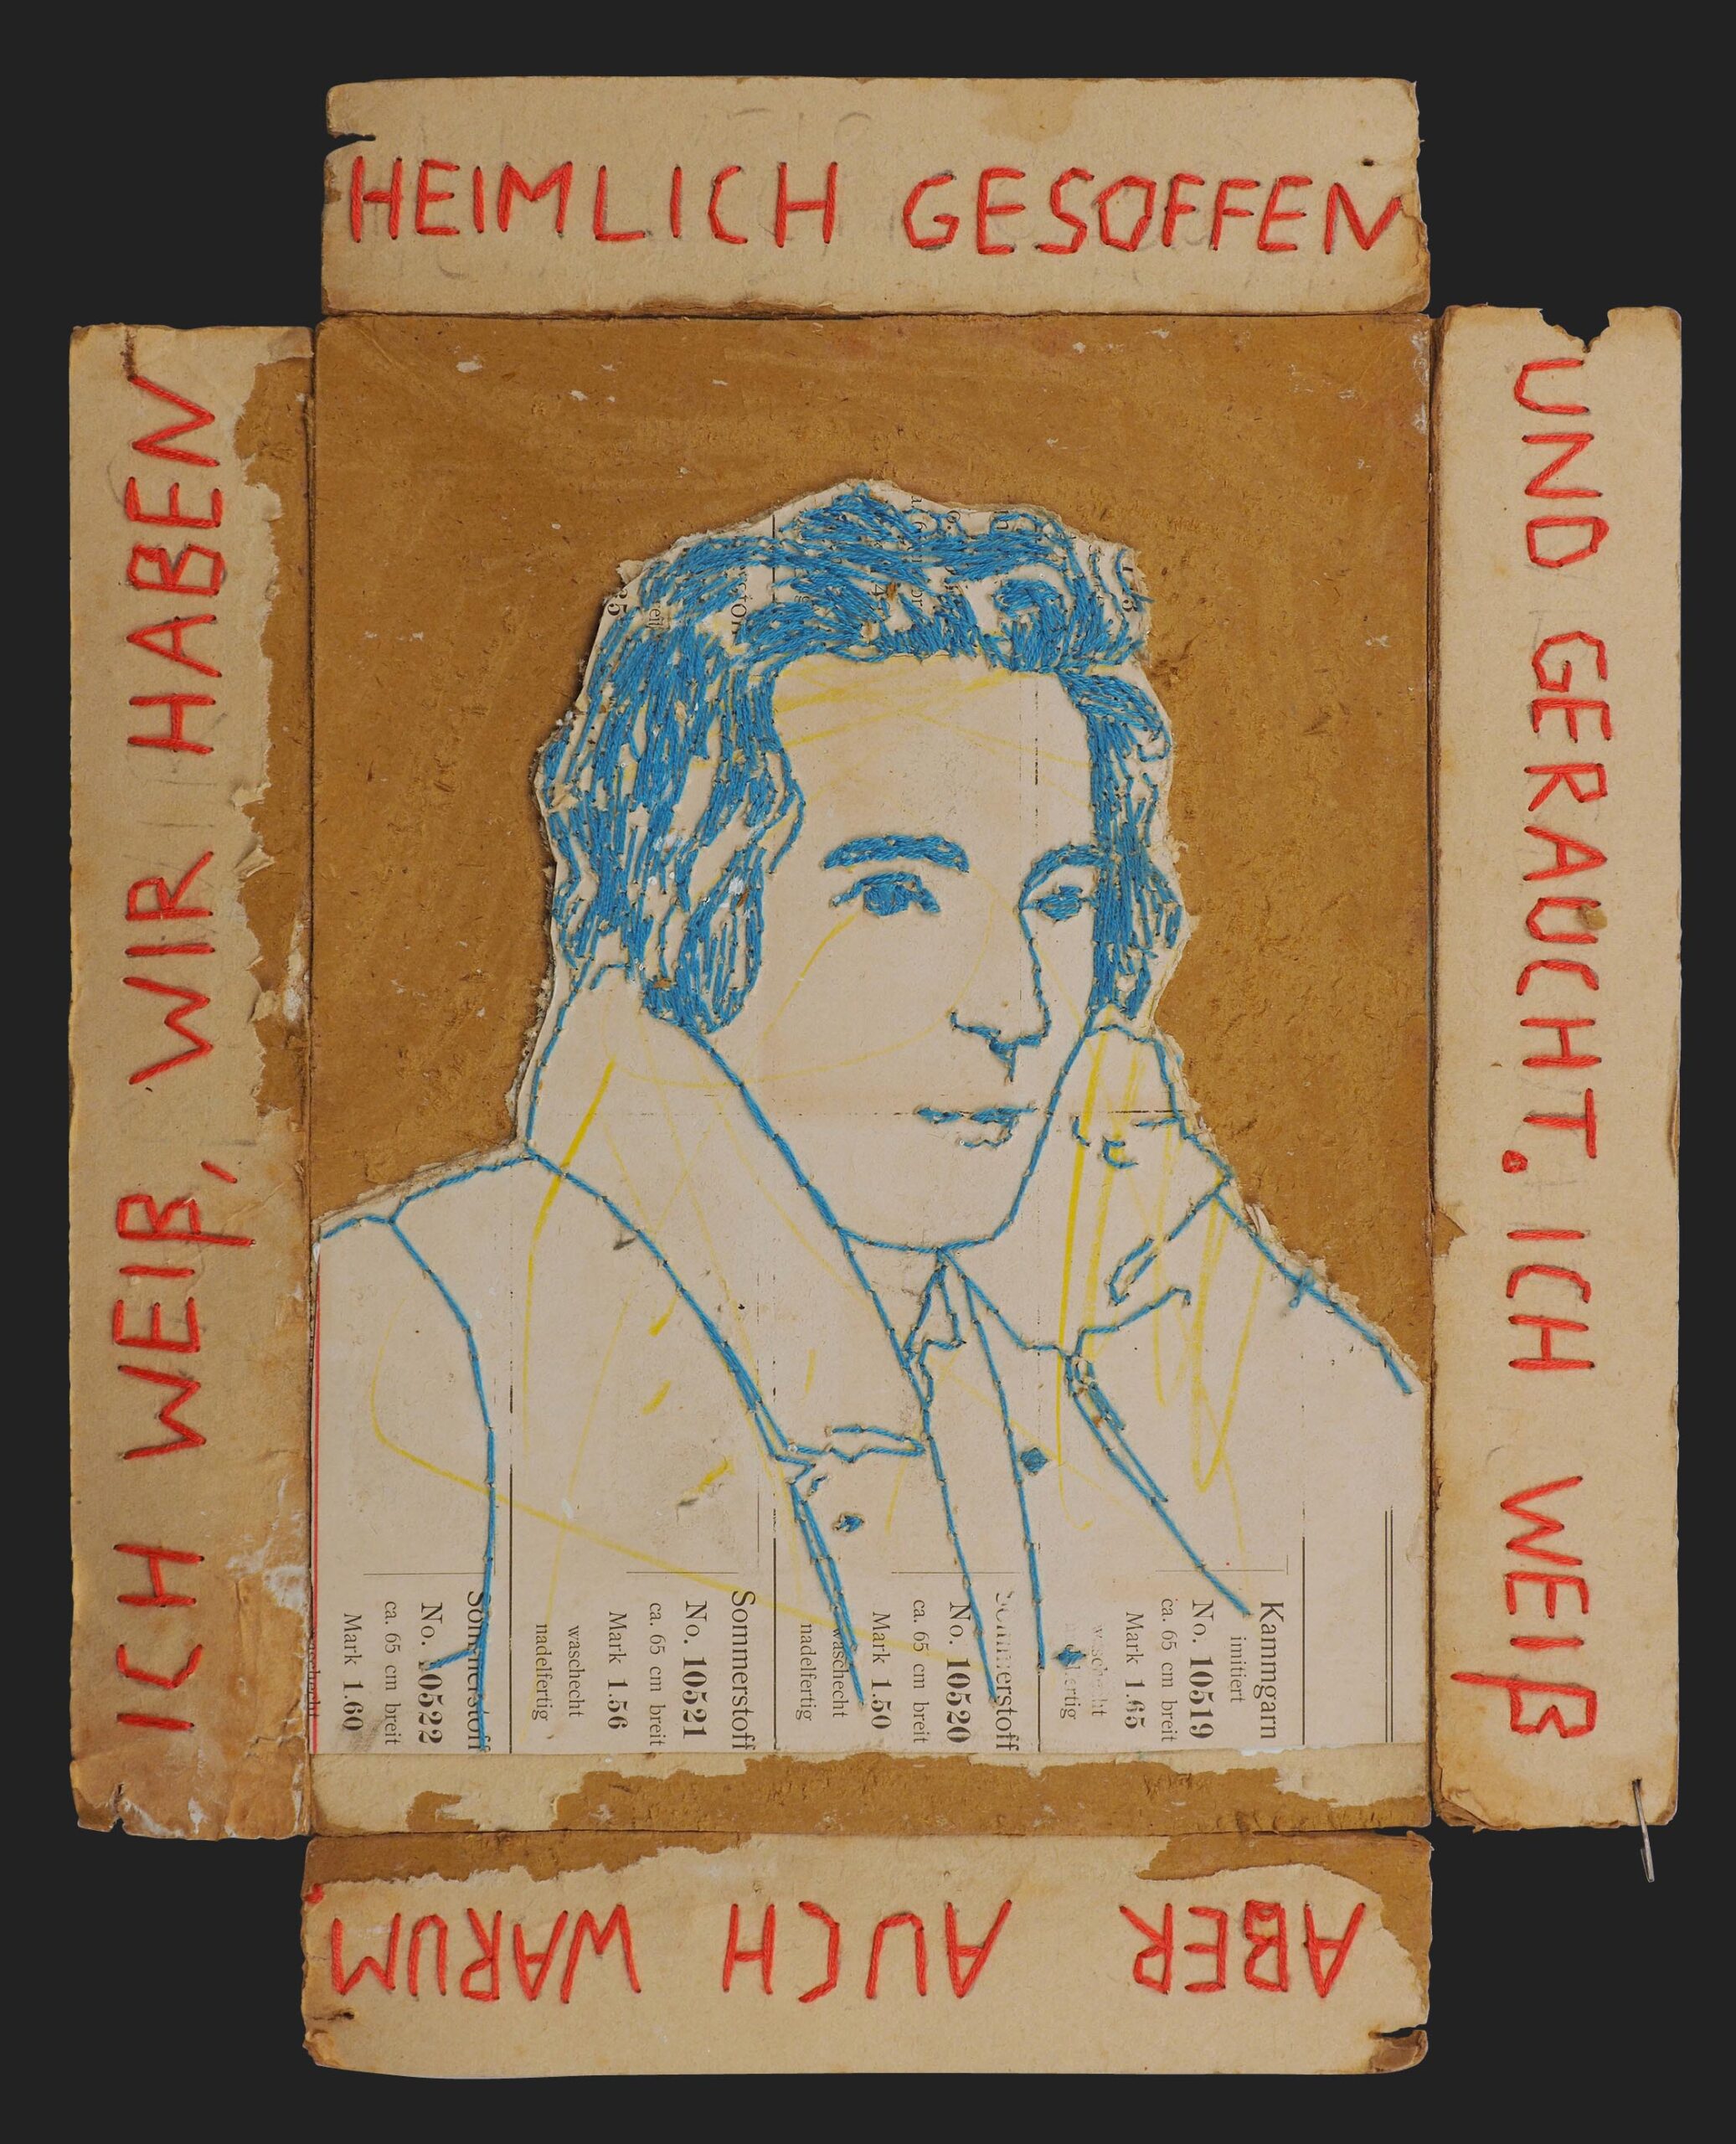 ICH WEIẞ, WIR HABEN
HEIMLICH GESOFFEN
UND GERAUCHT. ICH WEIẞ
ABER AUCH WARUM
Kammgarn
imitiert
No. 10519
ca. 65 cm breit
Mark 1.65
Sommerstoff
No. 10520
ca. 65 cm breit
Mark 1.50
waschecht
nadelfertig
Sommerstoff
No. 10521
ca. 65 cm breit
Mark 1.56
waschecht
nadelfertig
Sommerstoff
No. 10522
ca. 65 cm breit
Mark 1.60